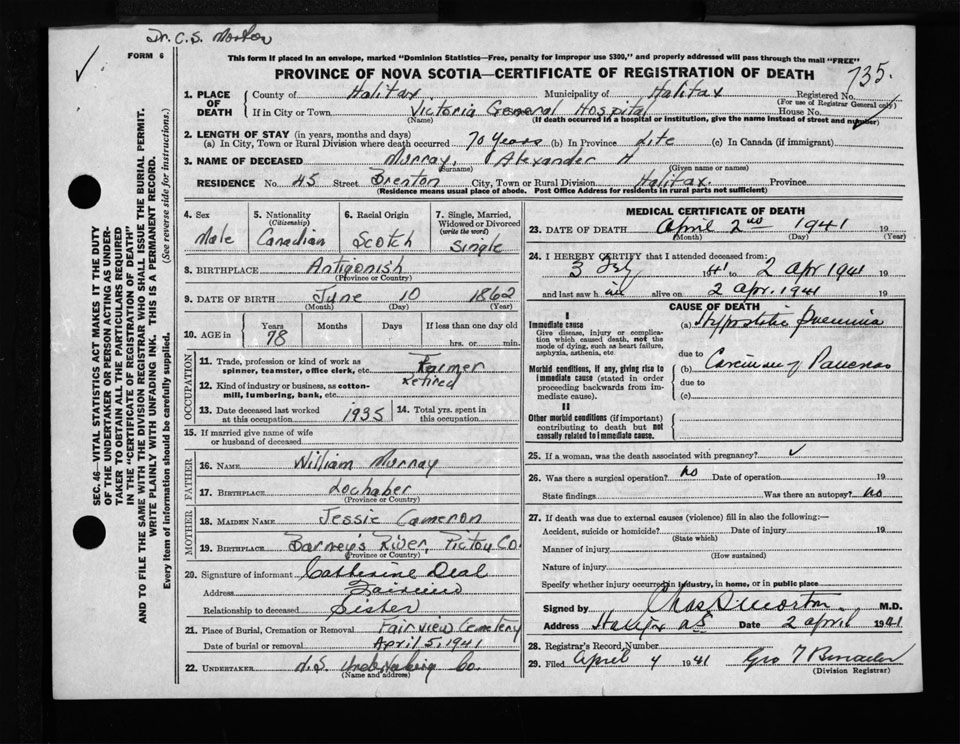 Dr. C. S. Morton
FORM 6
This form if placed in an envelope, marked "Dominion Statistics—Free, penalty for improper use $300," and properly addressed will pass through the mail "FREE"
PROVINCE OF NOVA SCOTIA—CERTIFICATE OF REGISTRATION OF DEATH
735.
1. PLACE OF DEATH
County of Halifax Municipality of Halifax Registered No.
(For use of Registrar General only)
If in City or Town Victoria General Hospital House No.
(Name) (If death occurred in a hospital or institution, give the name instead of street and number)
2. LENGTH OF STAY (in years, months and days)
(a) In City, Town or Rural Division where death occurred 70 Years (b) In Province Life (c) In Canada (if immigrant)
3. NAME OF DECEASED Murray, Alexander H
(Surname) (Given name or names)
RESIDENCE No. 45 Street Brenton City, Town or Rural Division Halifax. Province
(Residence means usual place of abode. Post Office Address for residents in rural parts not sufficient)
4. Sex Male
5. Nationality (Citizenship) Canadian
6. Racial Origin Scotch
7. Single, Married, Widowed or Divorced (write the word) Single
8. BIRTHPLACE Antigonish
(Province or Country)
9. DATE OF BIRTH June 10 1862
(Month) (Day) (Year)
10. AGE in Years 78 Months Days If less than one day old
hrs. or min.
OCCUPATION
11. Trade, profession or kind of work as spinner, teamster, office clerk, etc. Farmer
retired
12. Kind of industry or business, as cotton-mill, lumbering, bank, etc.
13. Date deceased last worked at this occupation 1935
14. Total yrs. spent in this occupation
15. If married give name of wife or husband of deceased
FATHER
16. NAME William Murray
17. BIRTHPLACE Lochaber
(Province or Country)
MOTHER
18. MAIDEN NAME Jessie Cameron
19. BIRTHPLACE Barney's River, Pictou Co.
(Province or Country)
20. Signature of informant Catherine Deal
Address
Relationship to deceased Sister
21. Place of Burial, Cremation or Removal Fairview Cemetery
Date of burial or removal April 5, 1941
22. UNDERTAKER N.S. Undertaking Co.
(Name and address)
MEDICAL CERTIFICATE OF DEATH
23. DATE OF DEATH April 2nd 1941 19
(Month) (Day) (Year)
24. I HEREBY CERTIFY that I attended deceased from:
3 Feby 41 to 2 Apr 1941 19
and last saw him alive on 2 apr. 1941 19
CAUSE OF DEATH
I
Immediate cause
Give disease, injury or complication which caused death, not the mode of dying, such as heart failure, asphyxia, asthenia, etc.
(a) Hypostatic Pneumonia
due to
Morbid conditions, if any, giving rise to immediate cause (stated in order proceeding backwards from immediate cause).
(b) Carcinoma of Pancreas
due to
(c)
II
Other morbid conditions (if important) contributing to death but not causally related to immediate cause.
25. If a woman, was the death associated with pregnancy?
26. Was there a surgical operation? no Date of operation 19
State findings Was there an autopsy? no
27. If death was due to external causes (violence) fill in also the following:—
Accident, suicide or homicide? Date of injury 19
(State which)
Manner of injury
(How sustained)
Nature of injury
Specify whether injury occurred in industry, in home, or in public place
Signed by Chas S Morton M.D.
Address Halifax NS Date 2 april 1941
28. Registrar's Record Number
29. Filed April 4 1941 Geo T
(Division Registrar)
SEC. 46—VITAL STATISTICS ACT MAKES IT THE DUTY
OF THE UNDERTAKER OR PERSON ACTING AS UNDER-
TAKER TO OBTAIN ALL THE PARTICULARS REQUIRED
IN THE "CERTIFICATE OF REGISTRATION OF DEATH"
AND TO FILE THE SAME WITH THE DIVISION REGISTRAR WHO SHALL ISSUE THE BURIAL PERMIT.
WRITE PLAINLY WITH UNFADING INK. THIS IS A PERMANENT RECORD.
Every item of information should be carefully supplied. (See reverse side for instructions.)